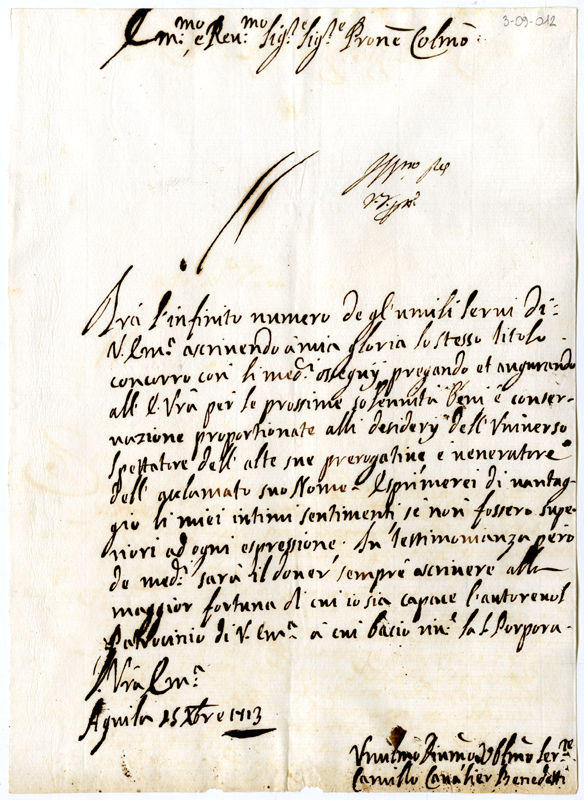 3-09-012
Em.mo e Reu.mo Sig.re Sig.re Prone Colmo
Frà l'infinito numero degl'umili serui di
V. Em.a ascriuendo à mia gloria lo stesso titolo
concorro con li med.i ossequij pregando et augurando
all' E. Vra per le prossime solennità beni e conser-
uazione proportionate alli desiderij dell'Vniuerso
spettatore dell'alte sue prerogatiue e ueneratore
dell' acclamato suo Nome. Esprimerei di uantag-
gio li miei intimi sentimenti se non fossero supe-
riori ad ogni espressione. In testimonianza però
de med.i sarà il douer sempre ascriuere alla
maggior fortuna di cui io sia capace l'autoreuol
Patrocinio di V. Em.a à cui bacio riu.e la S. Porpora.
Di Vra Em.a
Aquila 15 Xbre 1713
Vmilmo Diumo Obblmo Ser.re
Camillo Caualier Benedetti